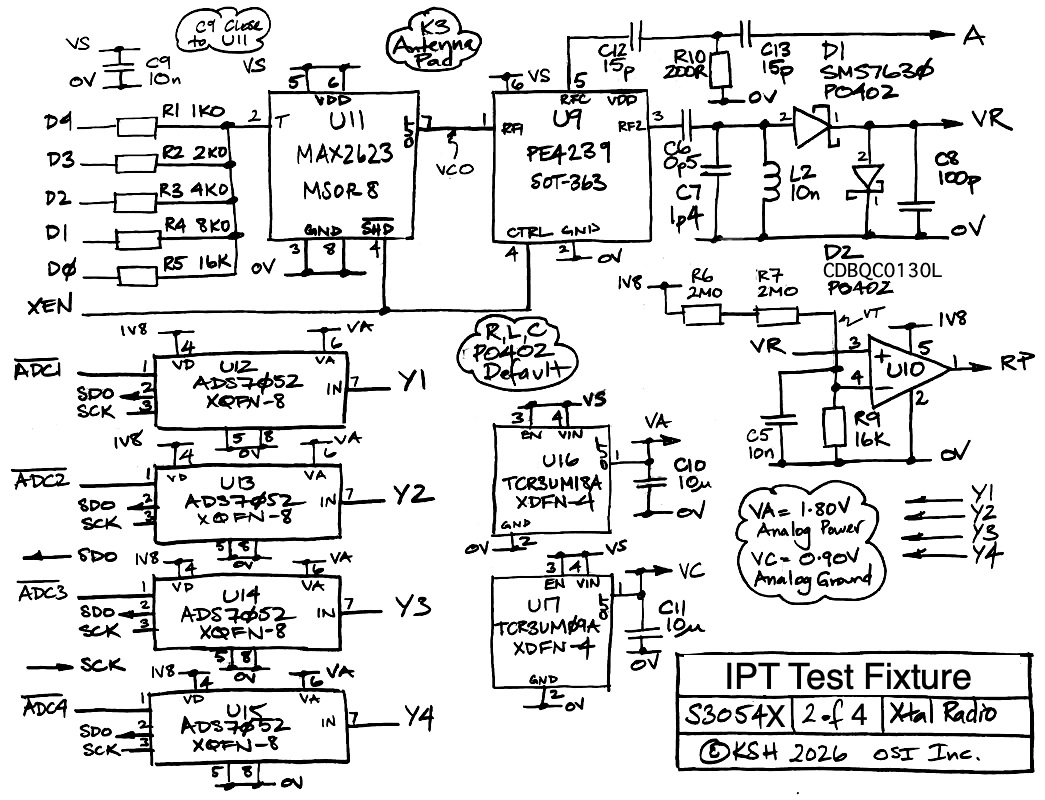 C9 Close
to U11
VS
C9
10n
0V
K3
Antenna
Pad
VS
5
6
VDD
U11
MAX2623
MSOR8
T
2
OUT
7
GND
SHD
3
8
4
0V
D4
R1 1K0
D3
R2 2K0
D2
R3 4K0
D1
R4 8K0
DØ
R5 16K
XEN
VCO
C12
15p
R10
200R
0V
C13
15p
A
VS
6
5
RFC
VDD
U9
1
RF1
RF2
3
PE4239
SOT-363
CTRL
GND
4
2
0V
C6
0p5
C7
1p4
L2
10n
D1
SMS763Ø
P0402
2
1
VR
2
1
C8
100p
0V
D2
CDBQC0130L
P0402
1V8
R6
2M0
R7
2M0
VT
1V8
VR
3
+
5
U10
1
RP
4
-
2
C5
10n
R9
16K
0V
R,L,C
P0402
Default
ADC1
1V8
4
VD
VA
6
VA
1
U12
ADS7Ø52
XQFN-8
SDO
2
SCK
3
IN
7
Y1
5
8
0V
ADC2
1V8
4
VD
VA
6
VA
1
U13
ADS7Ø52
XQFN-8
SDO
2
SCK
3
IN
7
Y2
5
8
0V
SDO
ADC3
1V8
4
VD
VA
6
VA
1
U14
ADS7Ø52
XQFN-8
SDO
2
SCK
3
IN
7
Y3
5
8
0V
SCK
ADC4
1V8
4
VD
VA
6
VA
1
U15
ADS7Ø52
XQFN-8
SDO
2
SCK
3
IN
7
Y4
5
8
0V
VS
3
4
EN
VIN
OUT
1
U16
TCR3UM18A
XDFN-4
GND
2
0V
VA
C10
10µ
0V
VS
3
4
EN
VIN
OUT
1
U17
TCR3UMØ9A
XDFN-4
GND
2
0V
VC
C11
10µ
0V
VA = 1.80V
Analog Power
VC = 0.90V
Analog Ground
Y1
Y2
Y3
Y4
IPT Test Fixture
S3054X
2 of 4
Xtal Radio
© KSH 2026 OSI Inc.